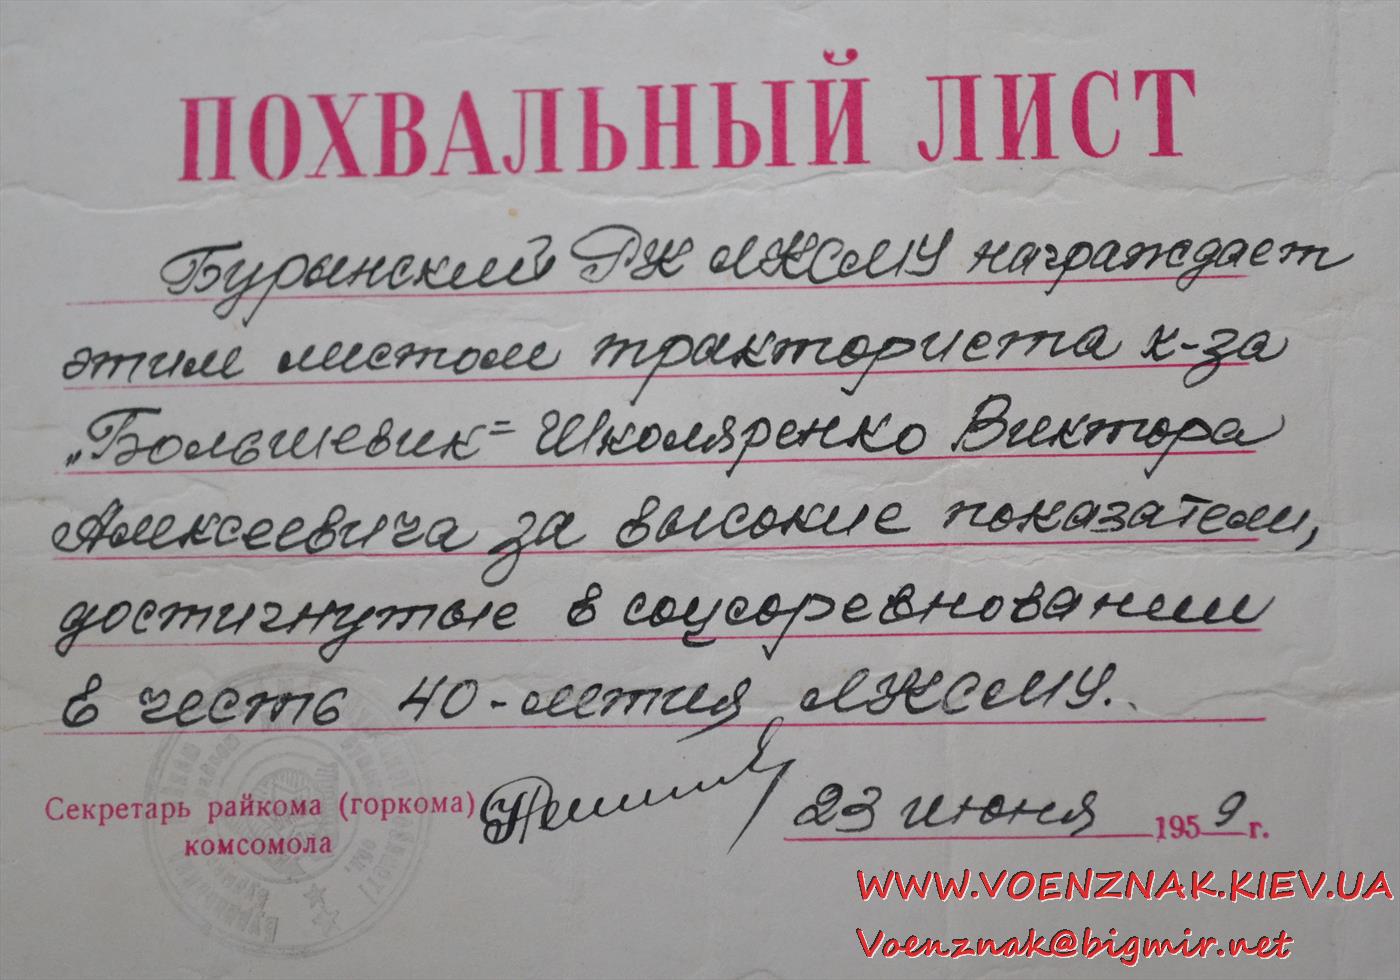 ПОХВАЛЬНЫЙ ЛИСТ
Бурынский РК ЛКСМУ награждает
этим листом тракториста к-за
„Большевик" Школяренко Виктора
Алексеевича за высокие показатели,
достигнутые в соцсоревновании
в честь 40-летия ЛКСМУ.
Секретарь райкома (горкома)
комсомола
23 июня 1959 г.
WWW.VOENZNAK.KIEV.UA
Voenznak@bigmir.net